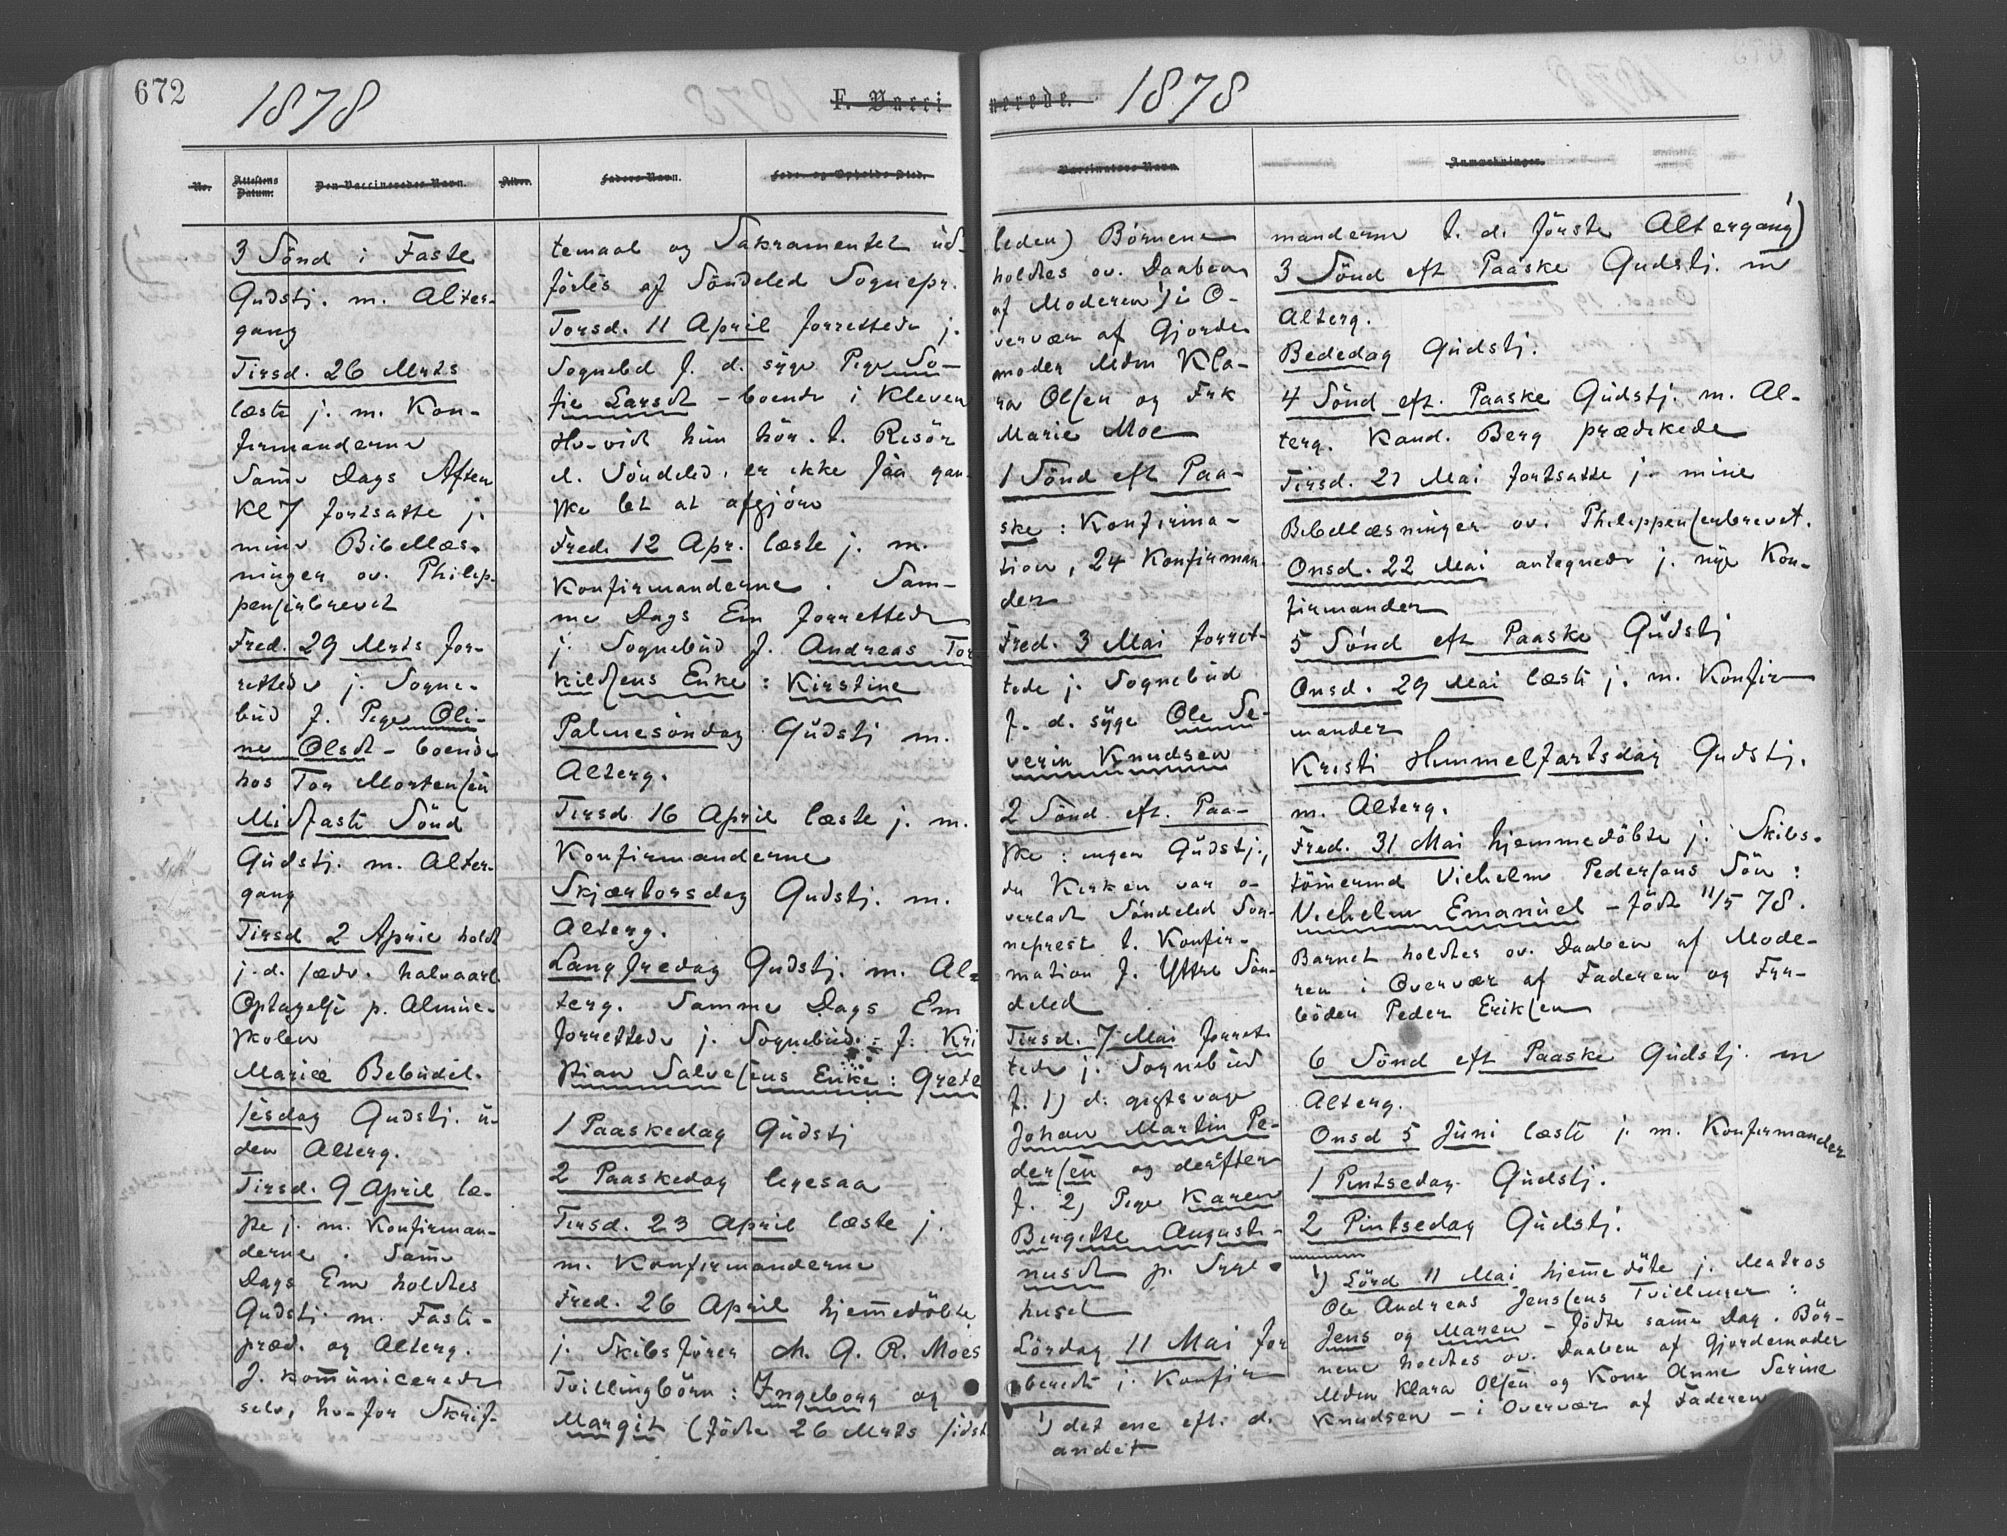 672
1878
F. Vacci
nerede.
1878
No.
Attestens Datum.
Den Vaccineredes Navn.
Alder.
Faders Navn.
Føde- og Opholds-Sted.
Vaccinators Navn.
Anmærkninger.
3 Sönd i Faste
Gudstj. m. Alter-
gang
Tirsd. 26 Mrts
læste j. m. Kon-
firmanderne
Samme Dags Aften
Kl 7 fortsatte j.
mine Bibellæs-
ninger ov. Philip-
penserbrevet
Fred. 29 Mrts for-
rettede j. Sogne-
bud f. Pige Oli-
ne Olsdt - boende
hos Tor Mortensen
Midfaste Sönd
Gudstj. m. Alter-
gang
Tirsd 2 April holdt
j. d. sædv. halvaarl.
Optagelse p. Almue-
skolen
Mariæ Bebudel-
sesdag Gudstj. u-
den Alterg.
Tirsd. 9 April læ-
ste j. m. Konfirman-
derne. Samme
Dags Em holdtes
Gudstj. m. Faste-
præd. og Alterg.
J. kommunicerede
selv, hv-for Skrif-
temaal og Sakramentet ud-
förtes af Söndeled Sognepr.
Torsd. 11 April forrettede j.
Sognebd f. d. syge Pige So-
fie Larsdt - boende i Kleven
Hv-vidt hun hör. t. Risör
el. Söndeled, er ikke saa gan-
ske let at afgjöre
Fred. 12 Apr. læste j. m.
Konfirmanderne. Sam-
me Dags Em forrettede
j. Sognebud f. Andreas Tor
kildsens Enke: Kirstine
Palmesöndag Gudstj m.
Alterg.
Tirsd 16 April læste j. m.
Konfirmanderne
Skjærtorsdag Gudstj. m.
Alterg.
Langfredag Gudstj. m. Al-
terg. Samme Dags Em
forrettede j. Sognebud: f. Kri
stian Salvesens Enke: Grete
1 Paaskedag Gudstj
2 Paaskedag ligesaa
Tirsd. 23 April læste j.
m. Konfirmanderne
Fred. 26 April hjemmedöbte
j. Skibsförer M. G. R. Moes
Tvillingbörn: Ingeborg og
Margit (födte 26 Mrts sidst
leden) Börnene
holdtes ov. Daaben
af Moderen 1) i O-
vervær af Gjorde
moder Mdm Kla-
ra Olsen og Frk
Marie Moe
1 Sönd eft Paa-
ske: Konfirma-
tion, 24 Konfirman-
der
Fred. 3 Mai forret-
tede j. Sognebud
f. d. syge Ole Se-
verin Knudsen
2 Sönd. eft. Paa-
ske: ingen Gudstj.,
da Kirken var o-
verladt Söndeled Sog-
neprest t. Konfir-
mation f. Yttre Sön-
deled
Tirsd. 7 Mai forret-
tede j. Sognebud
f. 1) d. gigtsvage
Johan Martin Pe-
dersen og derefter
f. 2) Pige Karen
Birgitte Augusti-
nusdt p. Syge-
huset
Lördag 11 Mai for
beredte j. Konfir
1) det ene eft. d.
andet
manderne t. d. förste Altergang 1)
3 Sönd eft Paaske Gudstj. m
Alterg.
Bededag Gudstj.
4 Sönd eft. Paaske Gudstj. m. Al-
terg. Kand. Berg prædikede
Tirsd. 21 Mai fortsatte j. mine
Bibellæsninger ov. Philippenserbrevet.
Onsd. 22 Mai antegnede j. nye Kon-
firmander
5 Sönd eft Paaske Gudstj
Onsd. 29 Mai læste j. m. Konfir
mander
Kristi Himmelfartsdag Gudstj.
m. Alterg.
Fred. 31 Mai hjemmedöbte j. Skibs-
tömmermd Vilhelm Pedersens Sön:
Vilhelm Emanuel - födt 11/5 78.
Barnet holdtes ov. Daaben af Mode-
ren i Overvær af Faderen og Fyr-
böder Peder Eriksen
6 Sönd eft Paaske Gudstj. m
Alterg.
Onsd 5 Juni læste j. m. Konfirmander
1 Pintsedag Gudstj.
2 Pintsedag Gudstj.
1) Lörd 11 Mai hjemmedöbte j. Matros
Ole Andreas Jensens Tvillinger:
Jens og Maren - födte samme Dag. Bör-
nene holdtes ov. Daaben af Gjordemoder
Mdm Klara Olsen og Kone Anne Serine
Knudsen - i Overvær af Faderen